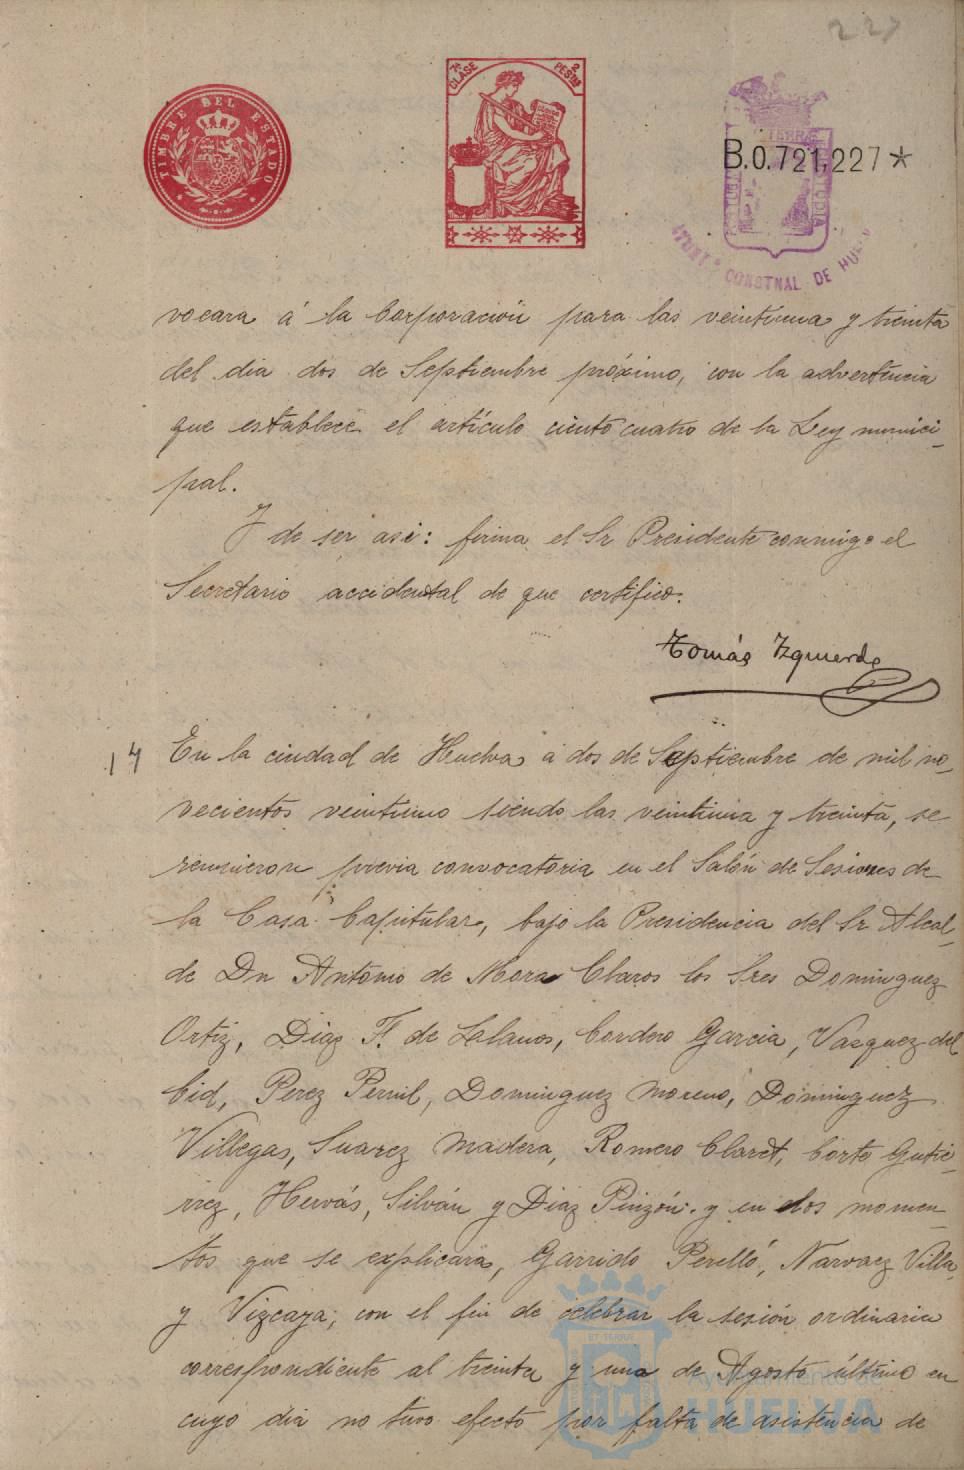 227
TIMBRE DEL ESTADO
7ª CLASE 2 PESTAS
B.0.721,227*
AYUNT° CONSTNAL DE HUE
vocara á la Corporación para las veintiuna y treinta
del dia dos de Septiembre próximo, con la advertencia
que establece el artículo ciento cuatro de la Ley munici-
pal.
Y de ser asi: firma el Sr Presidente conmigo el
Secretario accidental de que certifico.
Tomás Izquierdo
14
En la ciudad de Huelva a dos de Septiembre de mil no-
vecientos veintiuno siendo las veintiuna y treinta, se
reunieron previa convocatoria en el Salón de Sesiones de
la Casa Capitular, bajo la Presidencia del Sr Alcal-
de Dn Antonio de Mora Claros los Sres Dominguez
Ortiz, Diaz F. de Lalanos, Cordero Garcia, Vazquez del
Cid, Perez Pernil, Dominguez Moreno, Dominguez
Villegas, Suarez Madera, Romero Claret, Corte Gutie-
rrez, Hervás, Silván y Diaz Pinzón. y en dos momen-
tos que se explicará, Garrido Perelló, Narvaez Villa,
y Vizcaya; con el fin de celebrar la sesión ordinaria
correspondiente al treinta y una de Agosto último en
cuyo dia no tuvo efecto por falta de asistencia de
Ayuntamiento de
HUELVA